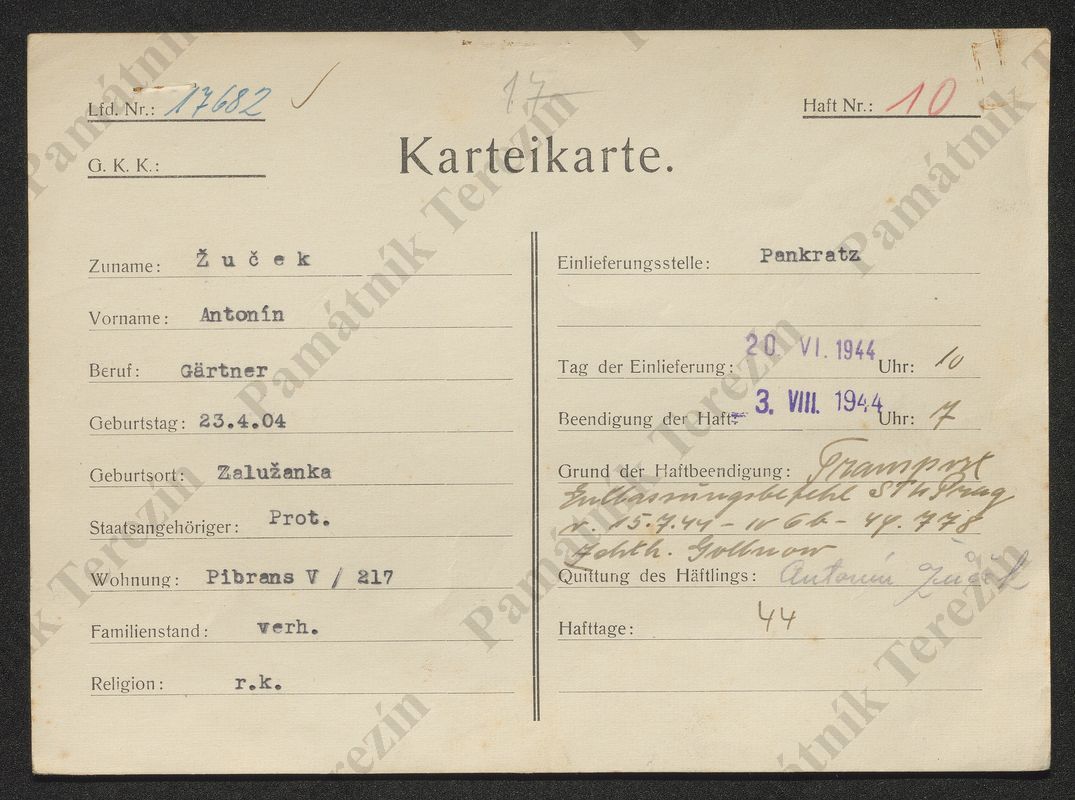 Lfd. Nr.: 17682
17
Haft Nr.: 10
G. K. K.:
Karteikarte.
Zuname: Žuček
Vorname: Antonín
Beruf: Gärtner
Geburtstag: 23.4.04
Geburtsort: Zalužanka
Staatsangehöriger: Prot.
Wohnung: Pibrans V / 217
Familienstand: verh.
Religion: r.k.
Einlieferungsstelle: Pankratz
Tag der Einlieferung: 20 VI. 1944 Uhr: 10
Beendigung der Haft: 3. VIII. 1944 Uhr: 7
Grund der Haftbeendigung: Transport
Entlassungsbefehl Prag
v. 15.7.44 - IV 6b - 44.778
Gollnow
Quittung des Häftlings: Antonín Žuček
Hafttage: 44
Památník Terezín